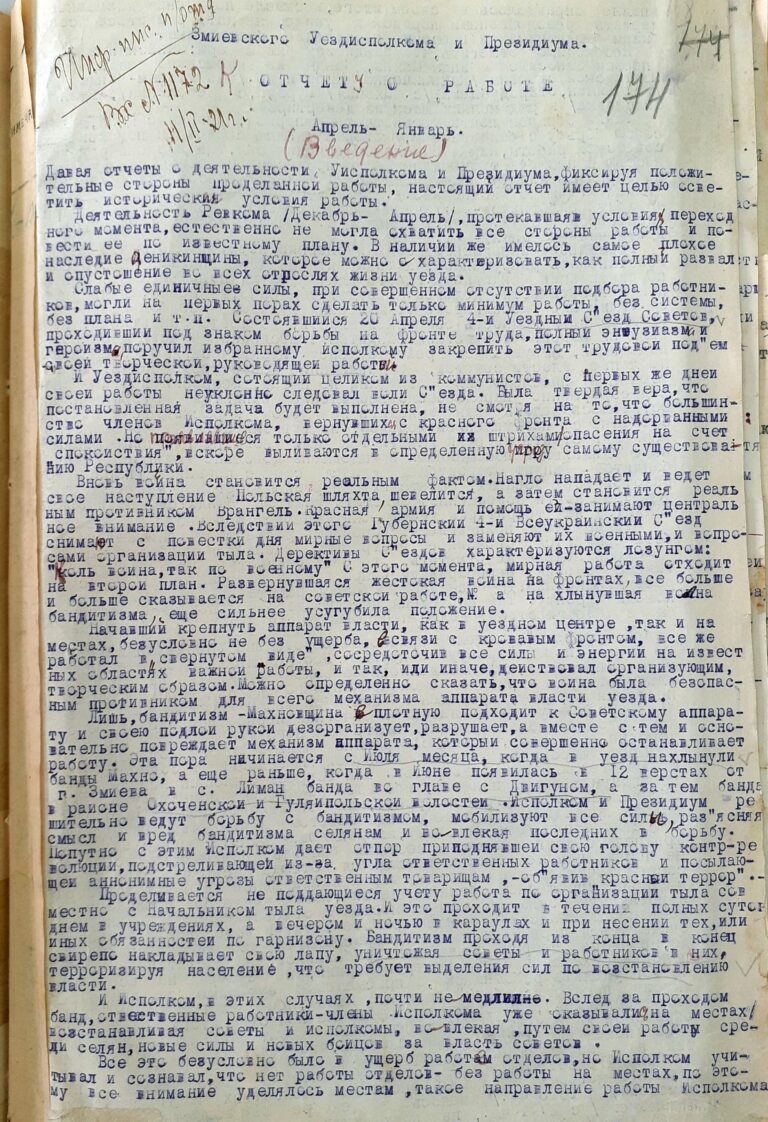 Инф. пис. п/отд
Вх №1172
11/II-21г.
174
174
Змиевского Уездисполкома и Президиума.
К ОТЧЕТУ О РАБОТЕ
Апрель- Январь.
(Введение)
Давая отчеты о деятельности Уисполкома и Президиума,фиксируя положи-
тельные стороны проделанной работы, настоящий отчет имеет целью осве-
тить исторические условия работы.
Деятельность Ревкома /Декабрь- Апрель/,протекавшая в условиях переход
ного момента,естественно не могла охватить все стороны работы и по-
вести ее по известному плану. В наличии же имелось самое плохое
наследие деникинщины, которое можно охарактеризовать,как полный развал
и опустошение во всех отрослях жизни уезда.
Слабые единичныее силы, при совершенном отсутствии подбора работни-
ков,могли на первых порах сделать только минимум работы, без системы,
без плана и т.п. Состоявшийся 20 Апреля 4-й Уездный С"езд Советов,
проходивший под знаком борьбы на фронте труда,полный энтузиазма и
героизма,поручил избранному исполкому закрепить этот трудовой под"ем
своей творческой,руководящей работой.
И Уездисполком, сотоящий целиком из коммунистов, с первых же дней
своей работы неуклонно следовал воли С"езда. Была твердая вера,что
постановленная задача будет выполнена, не смотря на то,что большин-
ство членов Исполкома, вернувшихся с красного фронта с надорванными
силами .Но появившиеся только отдельными штрихами опасения на счет
"спокойствия",вскоре выливаются в определенную угрозу самому существова-
нию Республики.
Вновь война становится реальным фактом.Нагло нападает и ведет
свое наступление Польская шляхта,шевелится, а затем становится реаль
ным противником Врангель.Красная армия и помощь ей-занимают централь
ное внимание .Вследствии этого Губернский 4-й Всеукраинский С"езд
снимают с повестки дня мирные вопросы и заменяют их военными,и вопро-
сами организации тыла. Дерективы С"ездов характеризуются лозунгом:
"Коль война,так по военному" С этого момента, мирная работа отходит
на второй план. Развернувшаяся жестокая война на фронтах,все больше
и больше сказывается на советской работе, а нахлынувшая волна
бандитизма, еще сильнее усугубила положение.
Начавший крепнуть аппарат власти, как в уездном центре ,так и на
местах,безусловно не без ущерба,в связи с кровавым фронтом, все же
работал"в свернутом виде" ,сосредоточив все силы и энергии на извест
ных областях важной работы, и так, или иначе,действовал организующим,
творческим образом.Можно определенно сказать,что война была безопас-
ным противником для всего механизма аппарата власти уезда.
Лишь,бандитизм -Махновщина вплотную подходит к Советскому аппара-
ту и своею подлой рукой дезорганизует,разрушает,а вместе с тем и осно-
вательно повреждает механизм аппарата,который совершенно останавливает
работу. Эта пора ничинается с Июля месяца, когда в уезд нахлынули
банды Махно, а еще раньше, когда в Июне появилась в 12 верстах от
г. Змиева в с. Лиман банда во главе с Двигуном, а за тем банда
в районе Охоченской и Гуляйпольской волостей .Исполком и Президиум ре
шительно ведут борьбу с бандитизмом, мобилизуют все силы, раз"ясняя
смысл и вред бандитизма селянам и вовлекая последних в борьбу.
Попутно с этим Исполком дает отпор приподнявшей свою голову контр-ре
волюции,подстреливающей из-за угла ответственных работников и посылаю-
щей аннонимные угрозы ответственным товарищам ,-об"явив красный террор".-
Проделывается не поддающиеся учету работа по организации тыла сов
местно с Начальником тыла уезда.И это проходит в течении полных суток
днем в учреждениях, а вечером и ночью в караулах и при несении тех,или
иных обязанностей по гарнизону. Бандитизм проходя из конца в конец
свирепо накладывает свою лапу, уничтожая советы и работников в них,
терроризируя население ,что требует выделения сил по восстановлению
власти.
И Исполком,в этих случаях ,почти не медлил. Вслед за проходом
банд,ответственные работники-члены Исполкома уже оказывались на местах,
возстанавливая советы и исполкомы, вовлекая ,путем своей работы сре-
ди селян,новые силы и новых бойцов за власть советов .
Все это безусловно было в ущерб работам отделов,но Исполком учи-
тывал и сознавал,что нет работы отделов- без работы на местах,по это-
му все внимание уделялось местам ,такое направление работы Исполкома